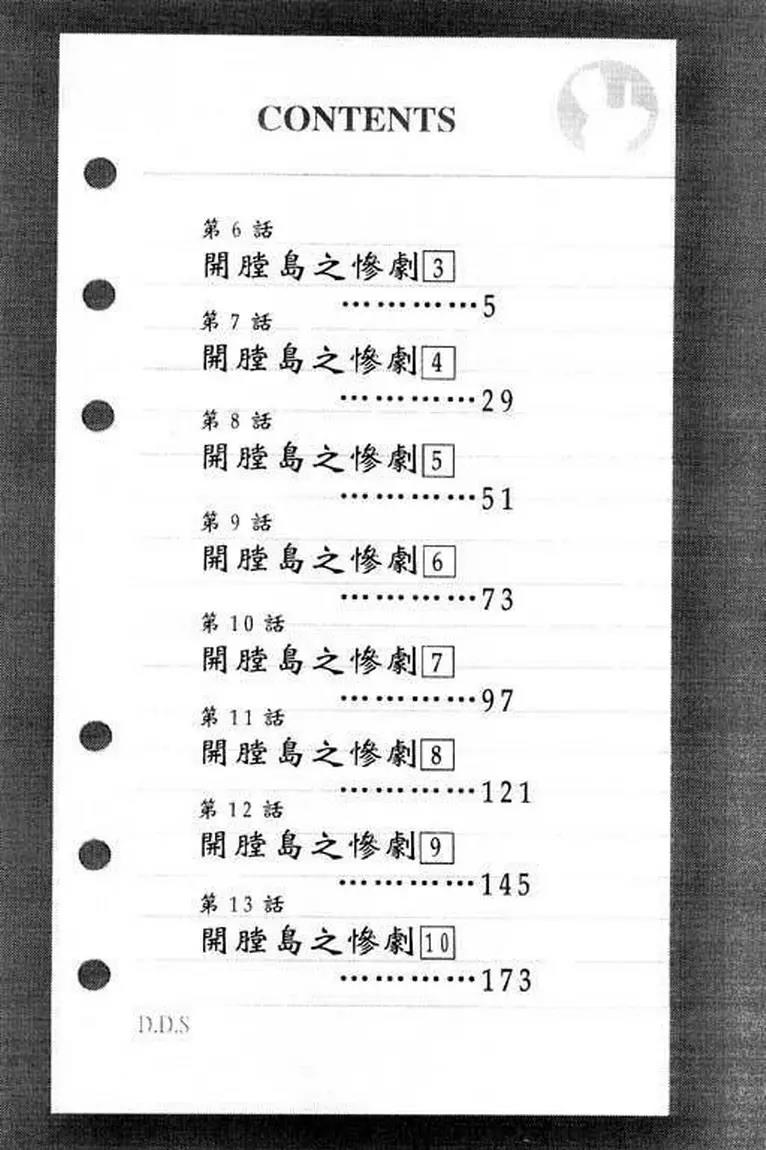 CONTENTS
第6話
開膛島之慘劇3
…………5
第7話
開膛島之慘劇4
…………29
第8話
開膛島之慘劇5
…………51
第9話
開膛島之慘劇6
…………73
第10話
開膛島之慘劇7
…………97
第11話
開膛島之慘劇8
…………121
第12話
開膛島之慘劇9
…………145
第13話
開膛島之慘劇10
…………173
D.D.S